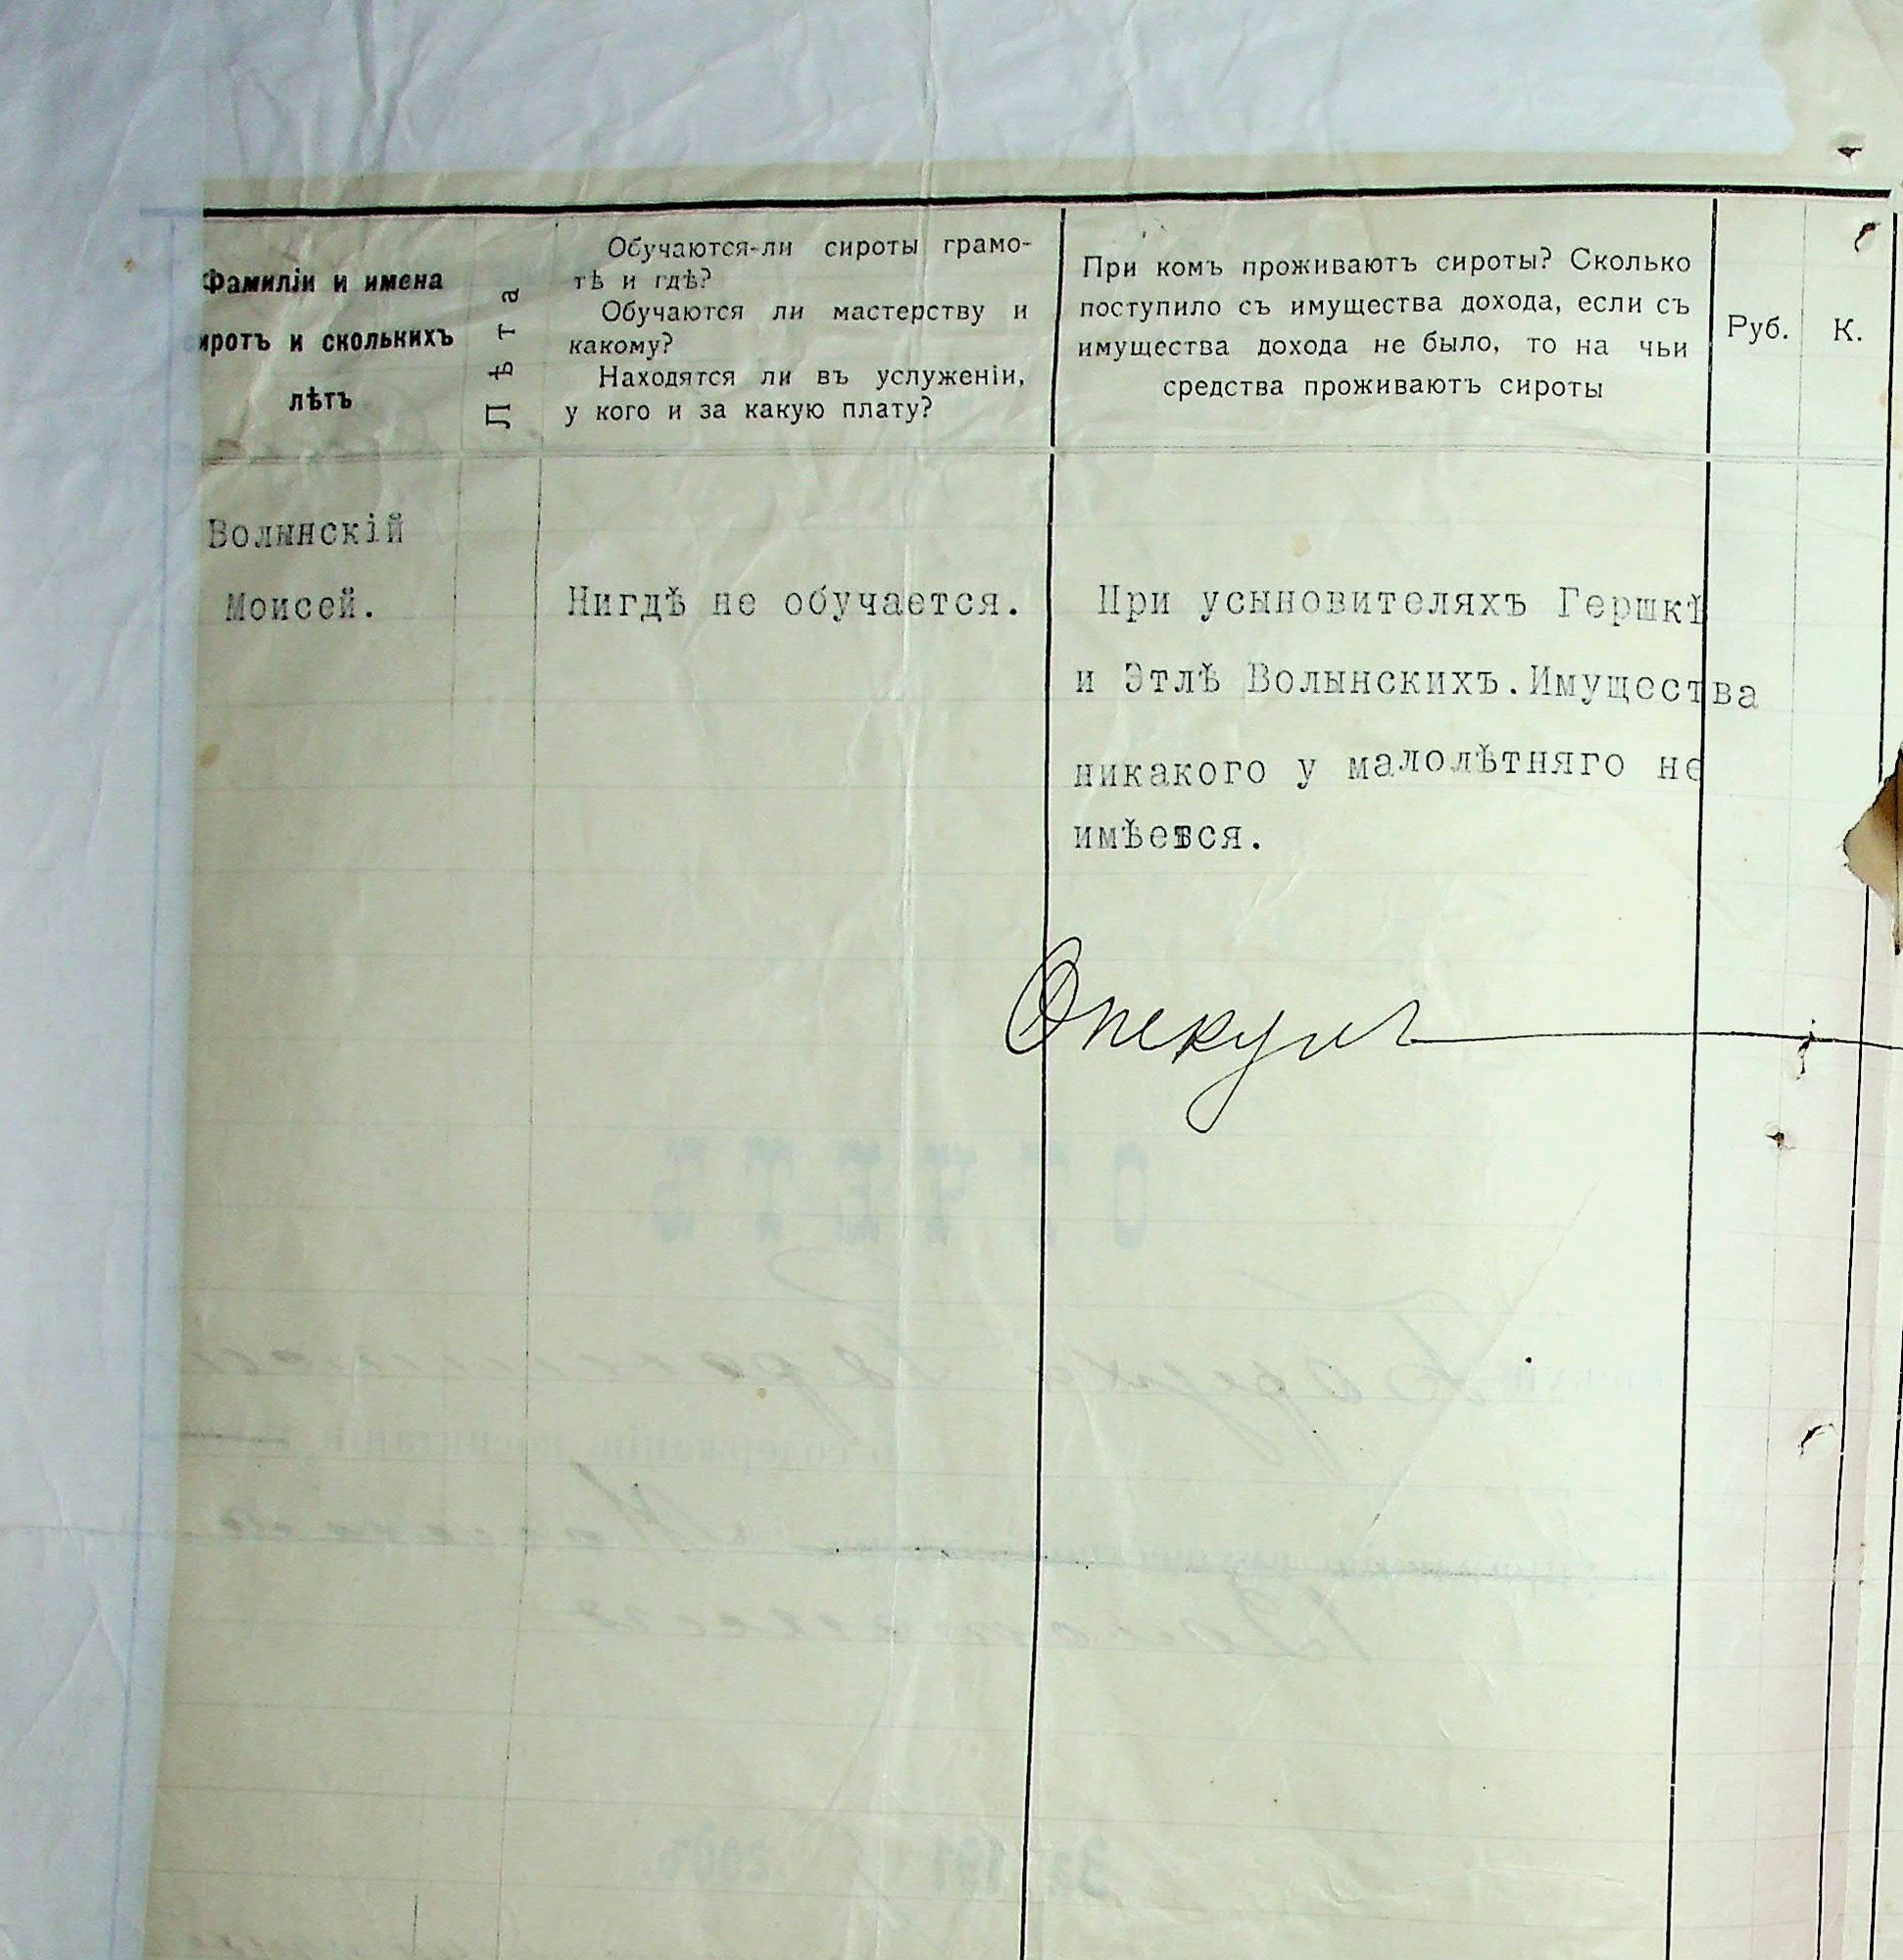 Фамиліи и имена
сиротъ и сколькихъ
лѣтъ
Лѣта
Обучаются-ли сироты грамо-
тѣ и гдѣ?
Обучаются ли мастерству и
какому?
Находятся ли въ услуженіи,
у кого и за какую плату?
При комъ проживаютъ сироты? Сколько
поступило съ имущества дохода, если съ
имущества дохода не было, то на чьи
средства проживаютъ сироты
Руб.
К.
Волынскій
Моисей.
Нигдѣ не обучается.
При усыновителяхъ Гершкѣ
и Этлѣ Волынскихъ. Имущества
никакого у малолѣтняго не
имѣется.
Опекунъ
ОТЧЕТЪ
о содержаніи, воспитаніи,
За 191 годъ.